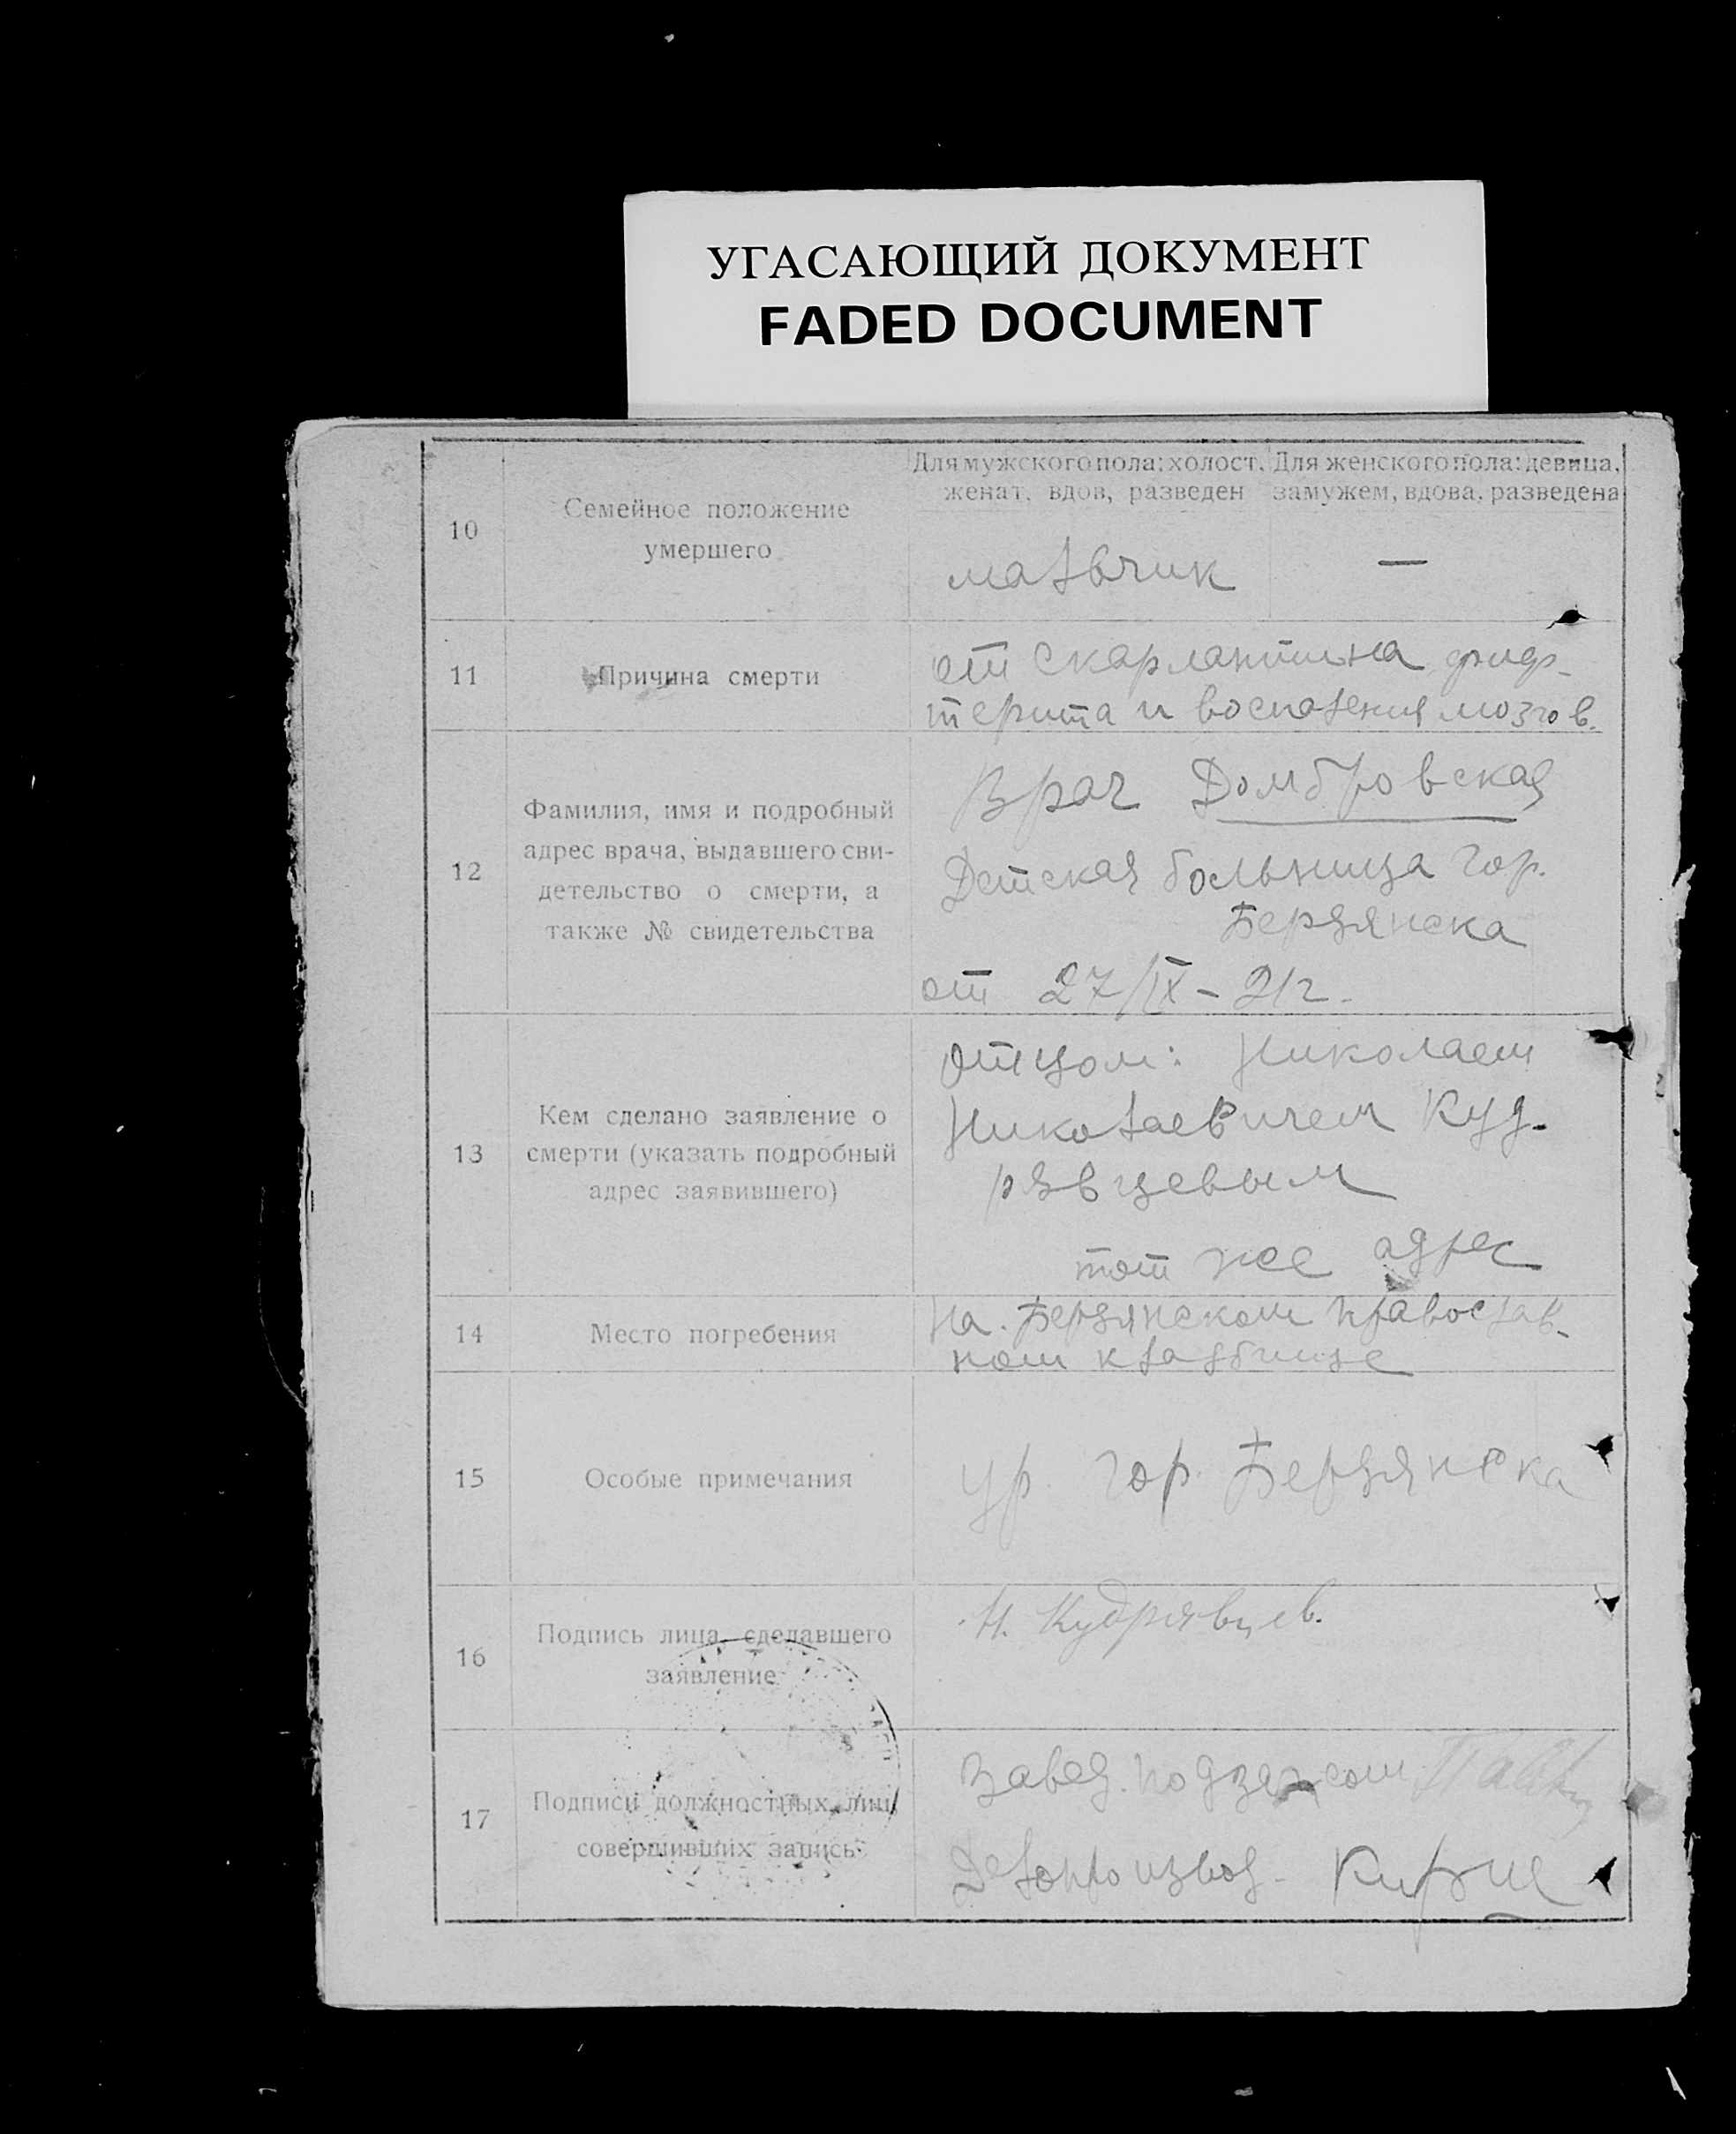 УГАСАЮЩИЙ ДОКУМЕНТ
FADED DOCUMENT
10
Семейное положение
умершего
Для мужского пола: холост,
женат, вдов, разведен
Для женского пола: девица,
замужем, вдова, разведена
мальчик
—
11
Причина смерти
от скарлантина, диф-
терита и воспаления мозгов.
12
Фамилия, имя и подробный
адрес врача, выдавшего сви-
детельство о смерти, а
также № свидетельства
Врач Домбровская
Детская больница гор.
Бердянска
от 27/IX – 21г.
13
Кем сделано заявление о
смерти (указать подробный
адрес заявившего)
отцом: Николаем
Николаевичем Куд-
рявцевым
тот же адрес
14
Место погребения
на. Бердянском православ-
ном кладбище
15
Особые примечания
ур. гор. Бердянска
16
Подпись лица, сделавшего
заявление
Н. Кудрявцев.
17
Подписи должностных лиц,
совершивших запись
Завед. подзагсом
Делопроизвод.